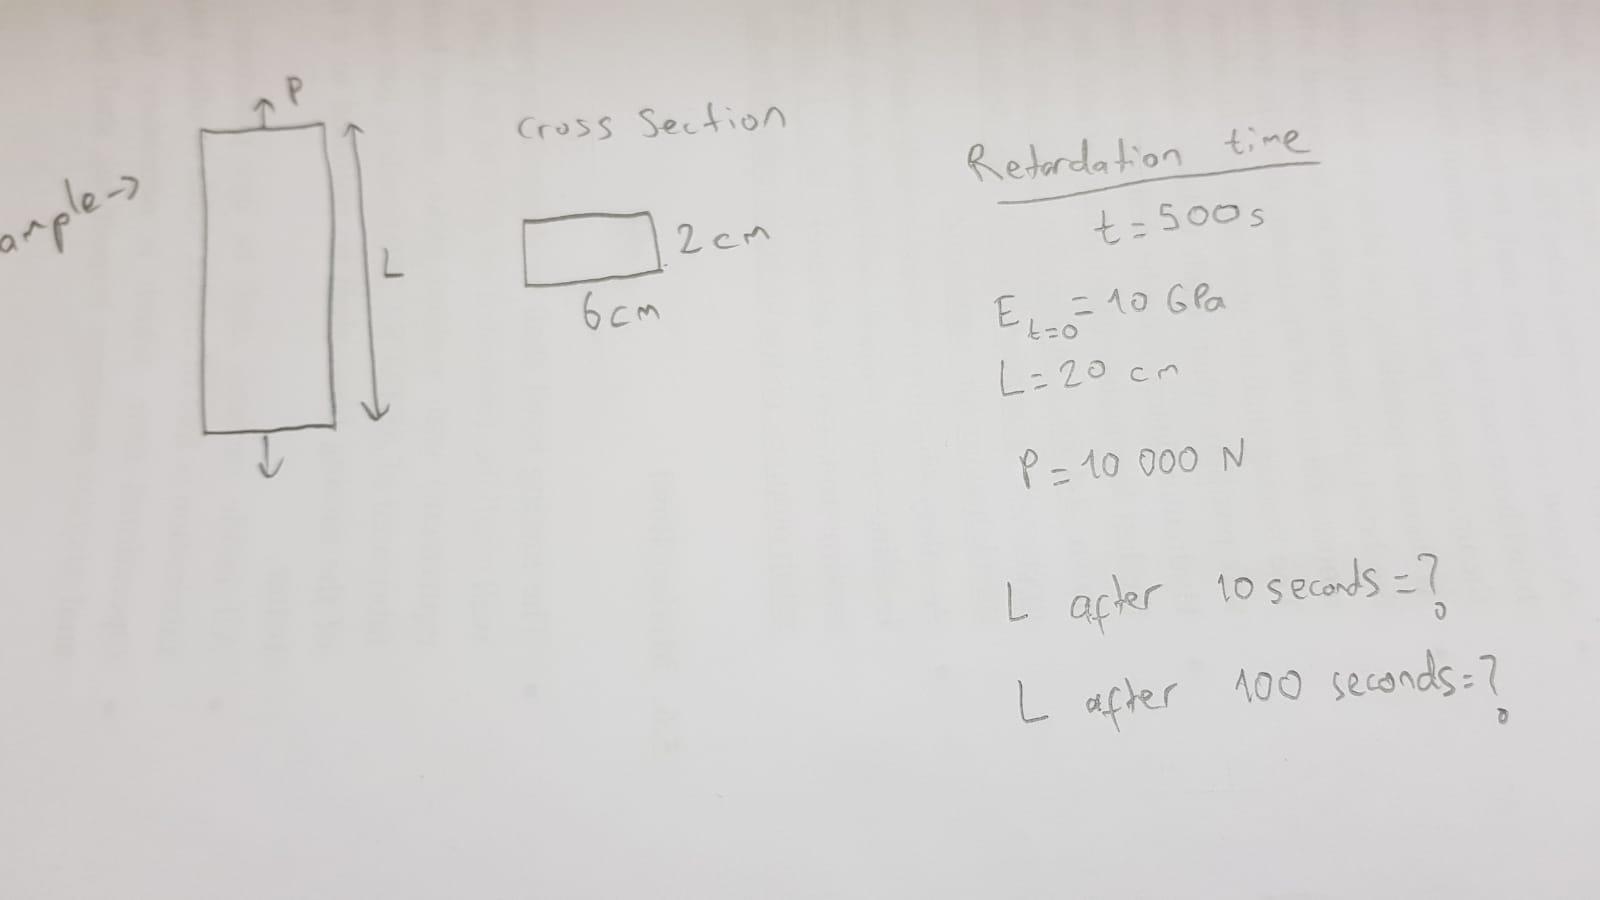 P
ample->
L
Cross Section
2cm
6cm
Retardation time
t=500s
E t=0 = 10 GPa
L=20 cm
P=10 000 N
L after 10 seconds=?
L after 100 seconds=?